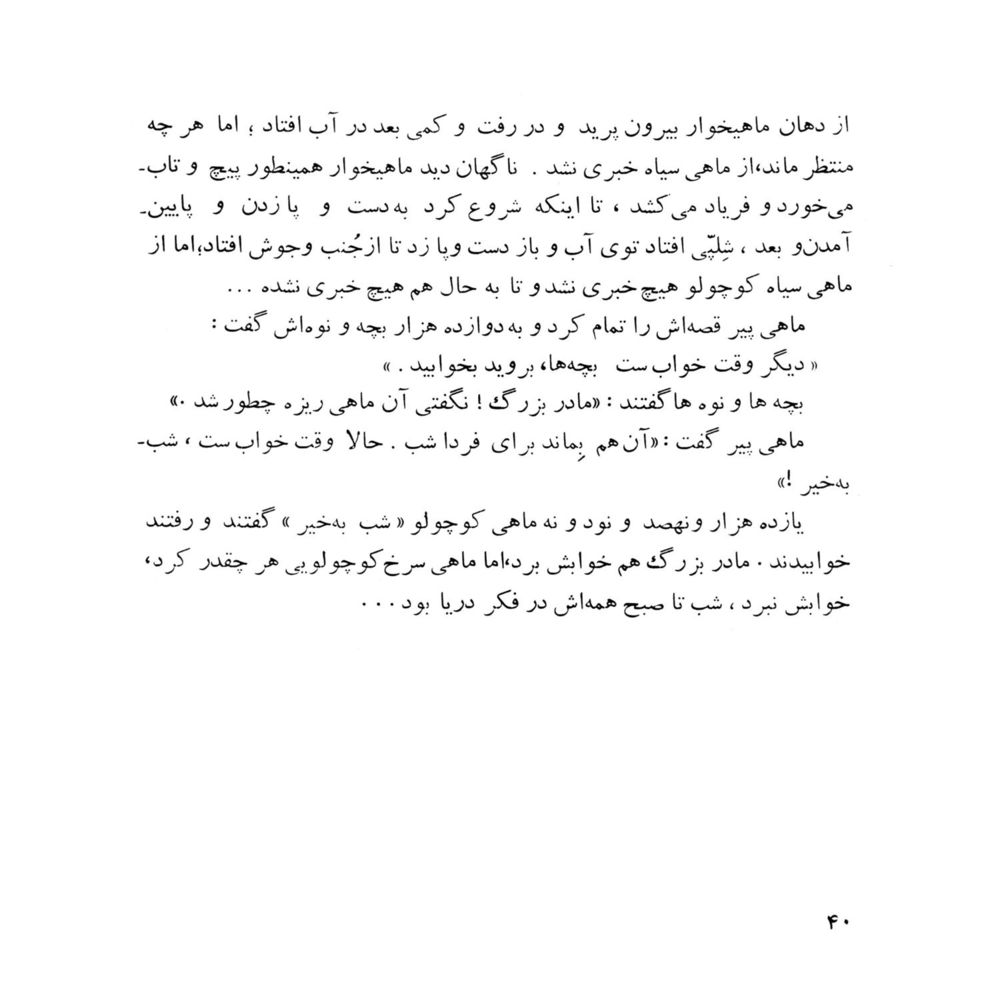 از دهان ماهیخوار بیرون پرید و در رفت و کمی بعد در آب افتاد ؛ اما هر چه
منتظر ماند،از ماهی سیاه خبری نشد . ناگهان دید ماهیخوار همینطور پیچ و تاب-
می‌خورد و فریاد می‌کشد ، تا اینکه شروع کرد به‌دست و پا زدن و پایین-
آمدن‌و بعد ، شِلپّی افتاد توی آب و باز دست و پا زد تا از جُنب وجوش افتاد؛اما از
ماهی سیاه کوچولو هیچ خبری نشد و تا به حال هم هیچ خبری نشده ...
ماهی پیر قصه‌اش را تمام کرد و به دوازده هزار بچه و نوه‌اش گفت :
« دیگر وقت خواب ست بچه‌ها، بروید بخوابید . »
بچه ها و نوه ها گفتند : «مادر بزرگ ! نگفتی آن ماهی ریزه چطور شد .»
ماهی پیر گفت : «آن هم بِماند برای فردا شب . حالا وقت خواب ست ، شب-
به‌خیر !»
یازده هزار ونهصد و نود و نه ماهی کوچولو « شب به‌خیر » گفتند و رفتند
خوابیدند . مادر بزرگ هم خوابش برد،اما ماهی سرخ کوچولویی هر چقدر کرد،
خوابش نبرد ، شب تا صبح همه‌اش در فکر دریا بود ...
۴۰